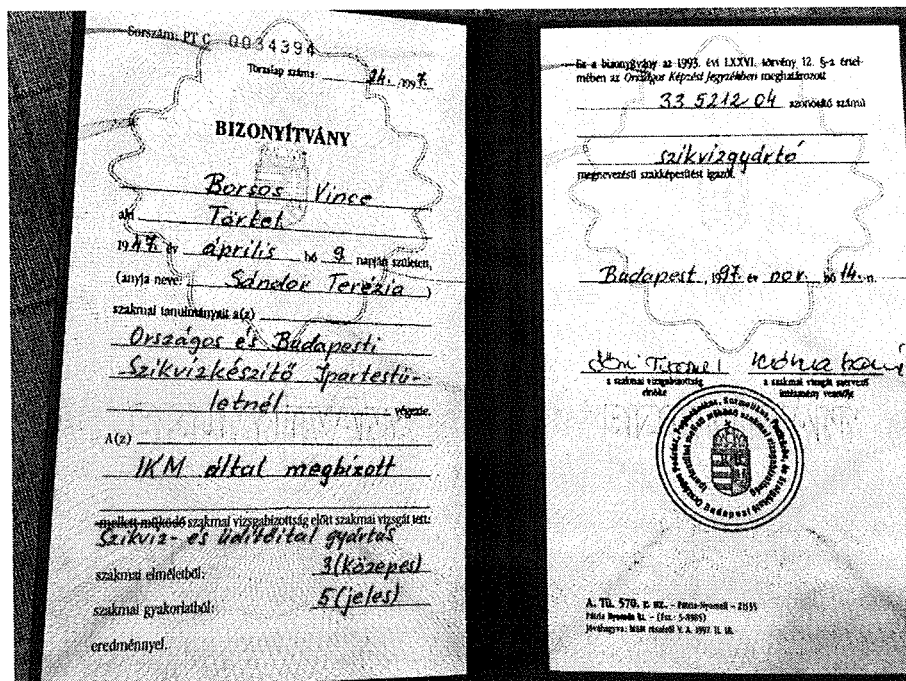 Sorszám: PT C 0034394
Törzslap száma: 24. /1997.
BIZONYÍTVÁNY
Borsos Vince
aki Törtel
1947. év április hó 9. napján született,
(anyja neve: Sándor Terézia)
szakmai tanulmányait a(z)
Országos és Budapesti
Szikvízkészítő Ipartestü-
letnél végezte.
A(z)
IKM által megbízott
mellett működő szakmai vizsgabizottság előtt szakmai vizsgát tett:
Szikvíz- és üdítőital gyártás
szakmai elméletből: 3 (közepes)
szakmai gyakorlatból: 5 (jeles)
eredménnyel.
Ez a bizonyítvány az 1993. évi LXXVI. törvény 12. §-a értel-
mében az Országos Képzési Jegyzékben meghatározott
33 5212 04 azonosító számú
szikvízgyártó
megnevezésű szakképesítést igazol.
Budapest, 1997. év nov. hó 14.-n.
a szakmai vizsgabizottság
elnöke
a szakmai vizsgát szervező
intézmény vezetője
A. Tü. 570. r. sz. – Pátria-Nyomell – 21535
Pátria Nyomda Rt.